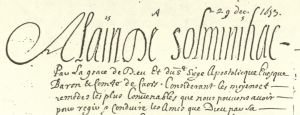 A 29 dec. 1653.
Alain De Solminihac
Par la grace de Dieu et du St Siege Apostolique Evesque
Baron & Comte de Caors. Considerant les moyens et
remedes les plus Convenables que nous pouvons avoir
pour regir & Conduire les Ames que Dieu par sa